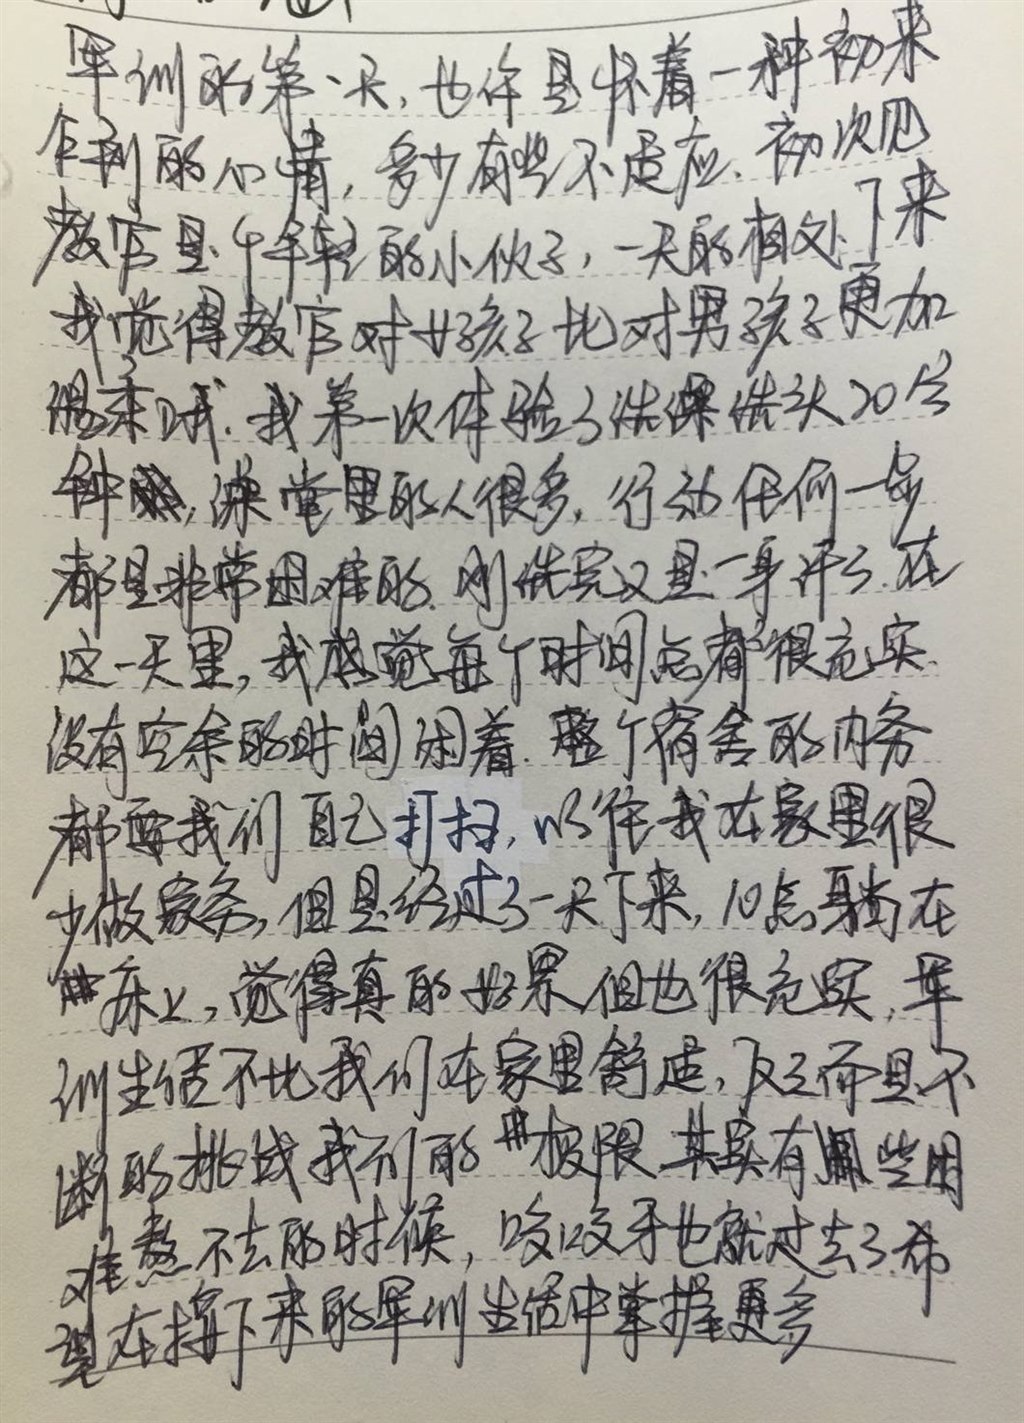 军训的第一天，也许是怀着一种初来
乍到的心情，多少有些不适应。初次见
教官是个年轻的小伙子，一天的相处下来
我觉得教官对女孩子比对男孩子更加
温柔哦。我第一次体验了洗澡洗头20分
钟，澡堂里的人很多，行动任何一步
都是非常困难的。刚洗完又是一身汗了。在
这一天里，我感觉每个时间点都很充实
没有空余的时间闲着。整个宿舍的内务
都要我们自己打扫，以往我在家里很
少做家务，但是经过了一天下来，10点躺在
床上，觉得真的好累但也很充实，军
训生活不比我们在家里舒适，反之而是不
断的挑战我们的极限。其实有些困
难熬不去的时候，咬咬牙也就过去了。希
望在接下来的军训生活中掌握更多